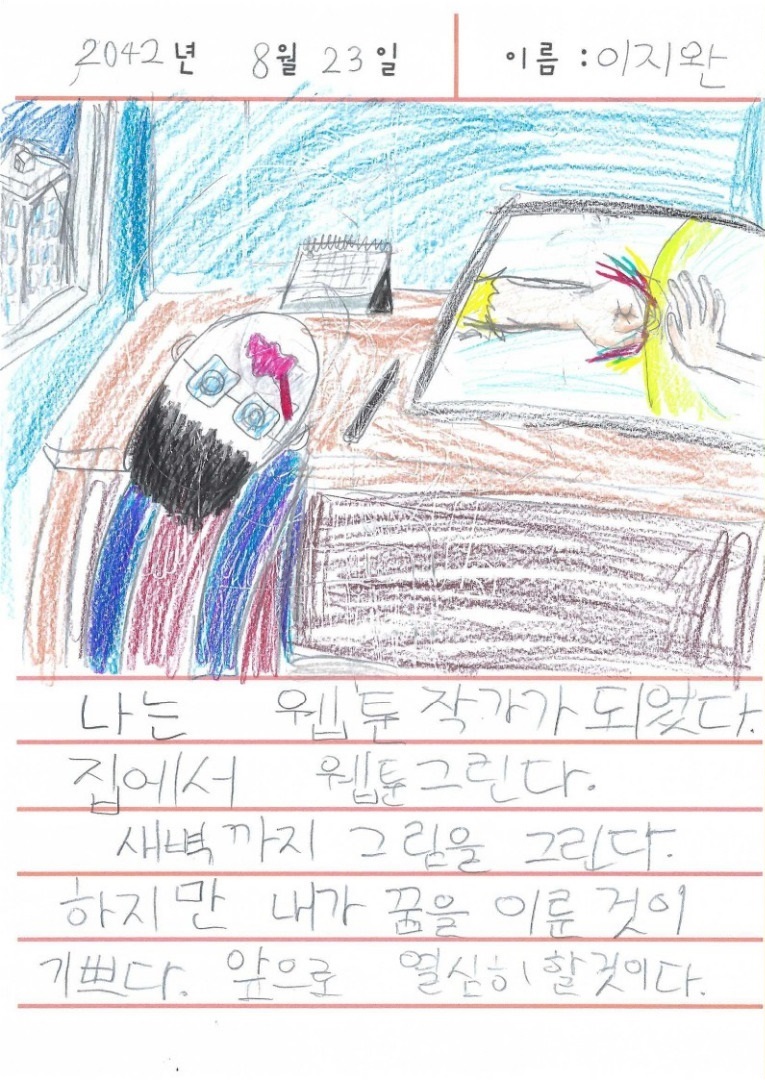 2042년 8월 23일 이름 : 이지완
나는 웹툰 작가가 되었다.
집에서 웹툰그린다.
새벽까지 그림을 그린다.
하지만 내가 꿈을 이룬 것이
기쁘다. 앞으로 열심히 할것이다.